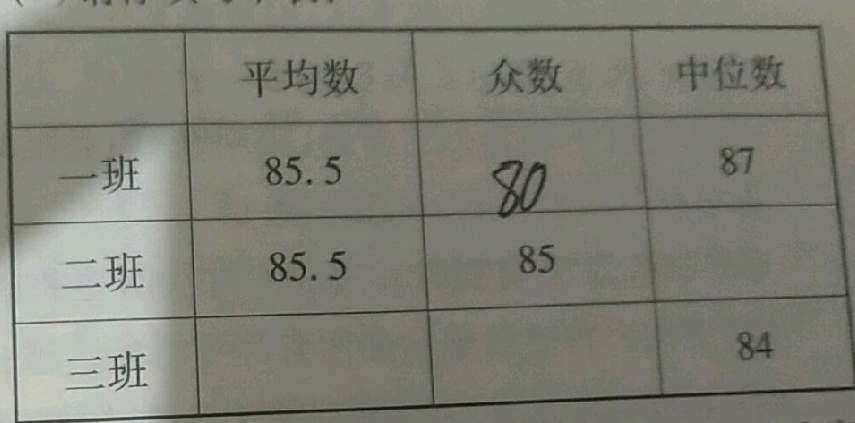 平均数 众数 中位数
一班 85.5 80 87
二班 85.5 85
三班 84